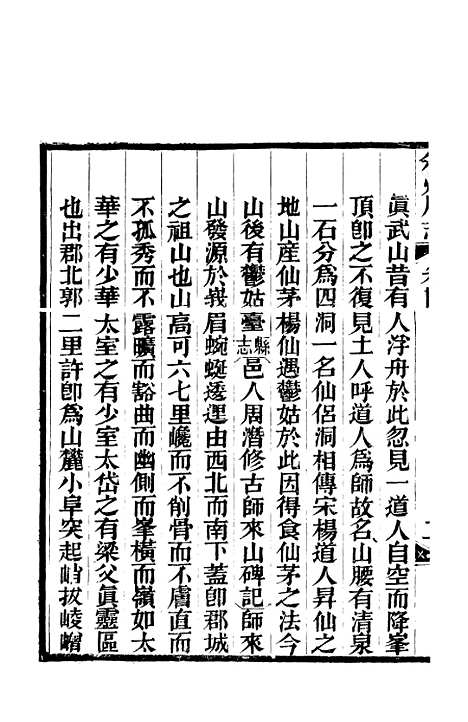 眞武山昔有人浮舟於此忽見一道人自空而降峯
頂卽之不復見土人呼道人爲師故名山腰有清泉
一石分爲四洞一名仙侶洞相傳宋楊道人昇仙之
地山産仙茅楊仙遇鬱姑於此因得食仙茅之法今
山後有鬱姑臺縣志邑人周潛修古師來山碑記師來
山發源於峩眉蜿蜒逶迤由西北而南下蓋卽郡城
之祖山也山高可六七里巉而不削骨而不膚直而
不孤秀而不露曠而豁曲而幽側而峯橫而嶺如太
華之有少華太室之有少室太岱之有梁父眞靈區
也出郡北郭二里許卽爲山麓小阜突起峭拔崚嶒